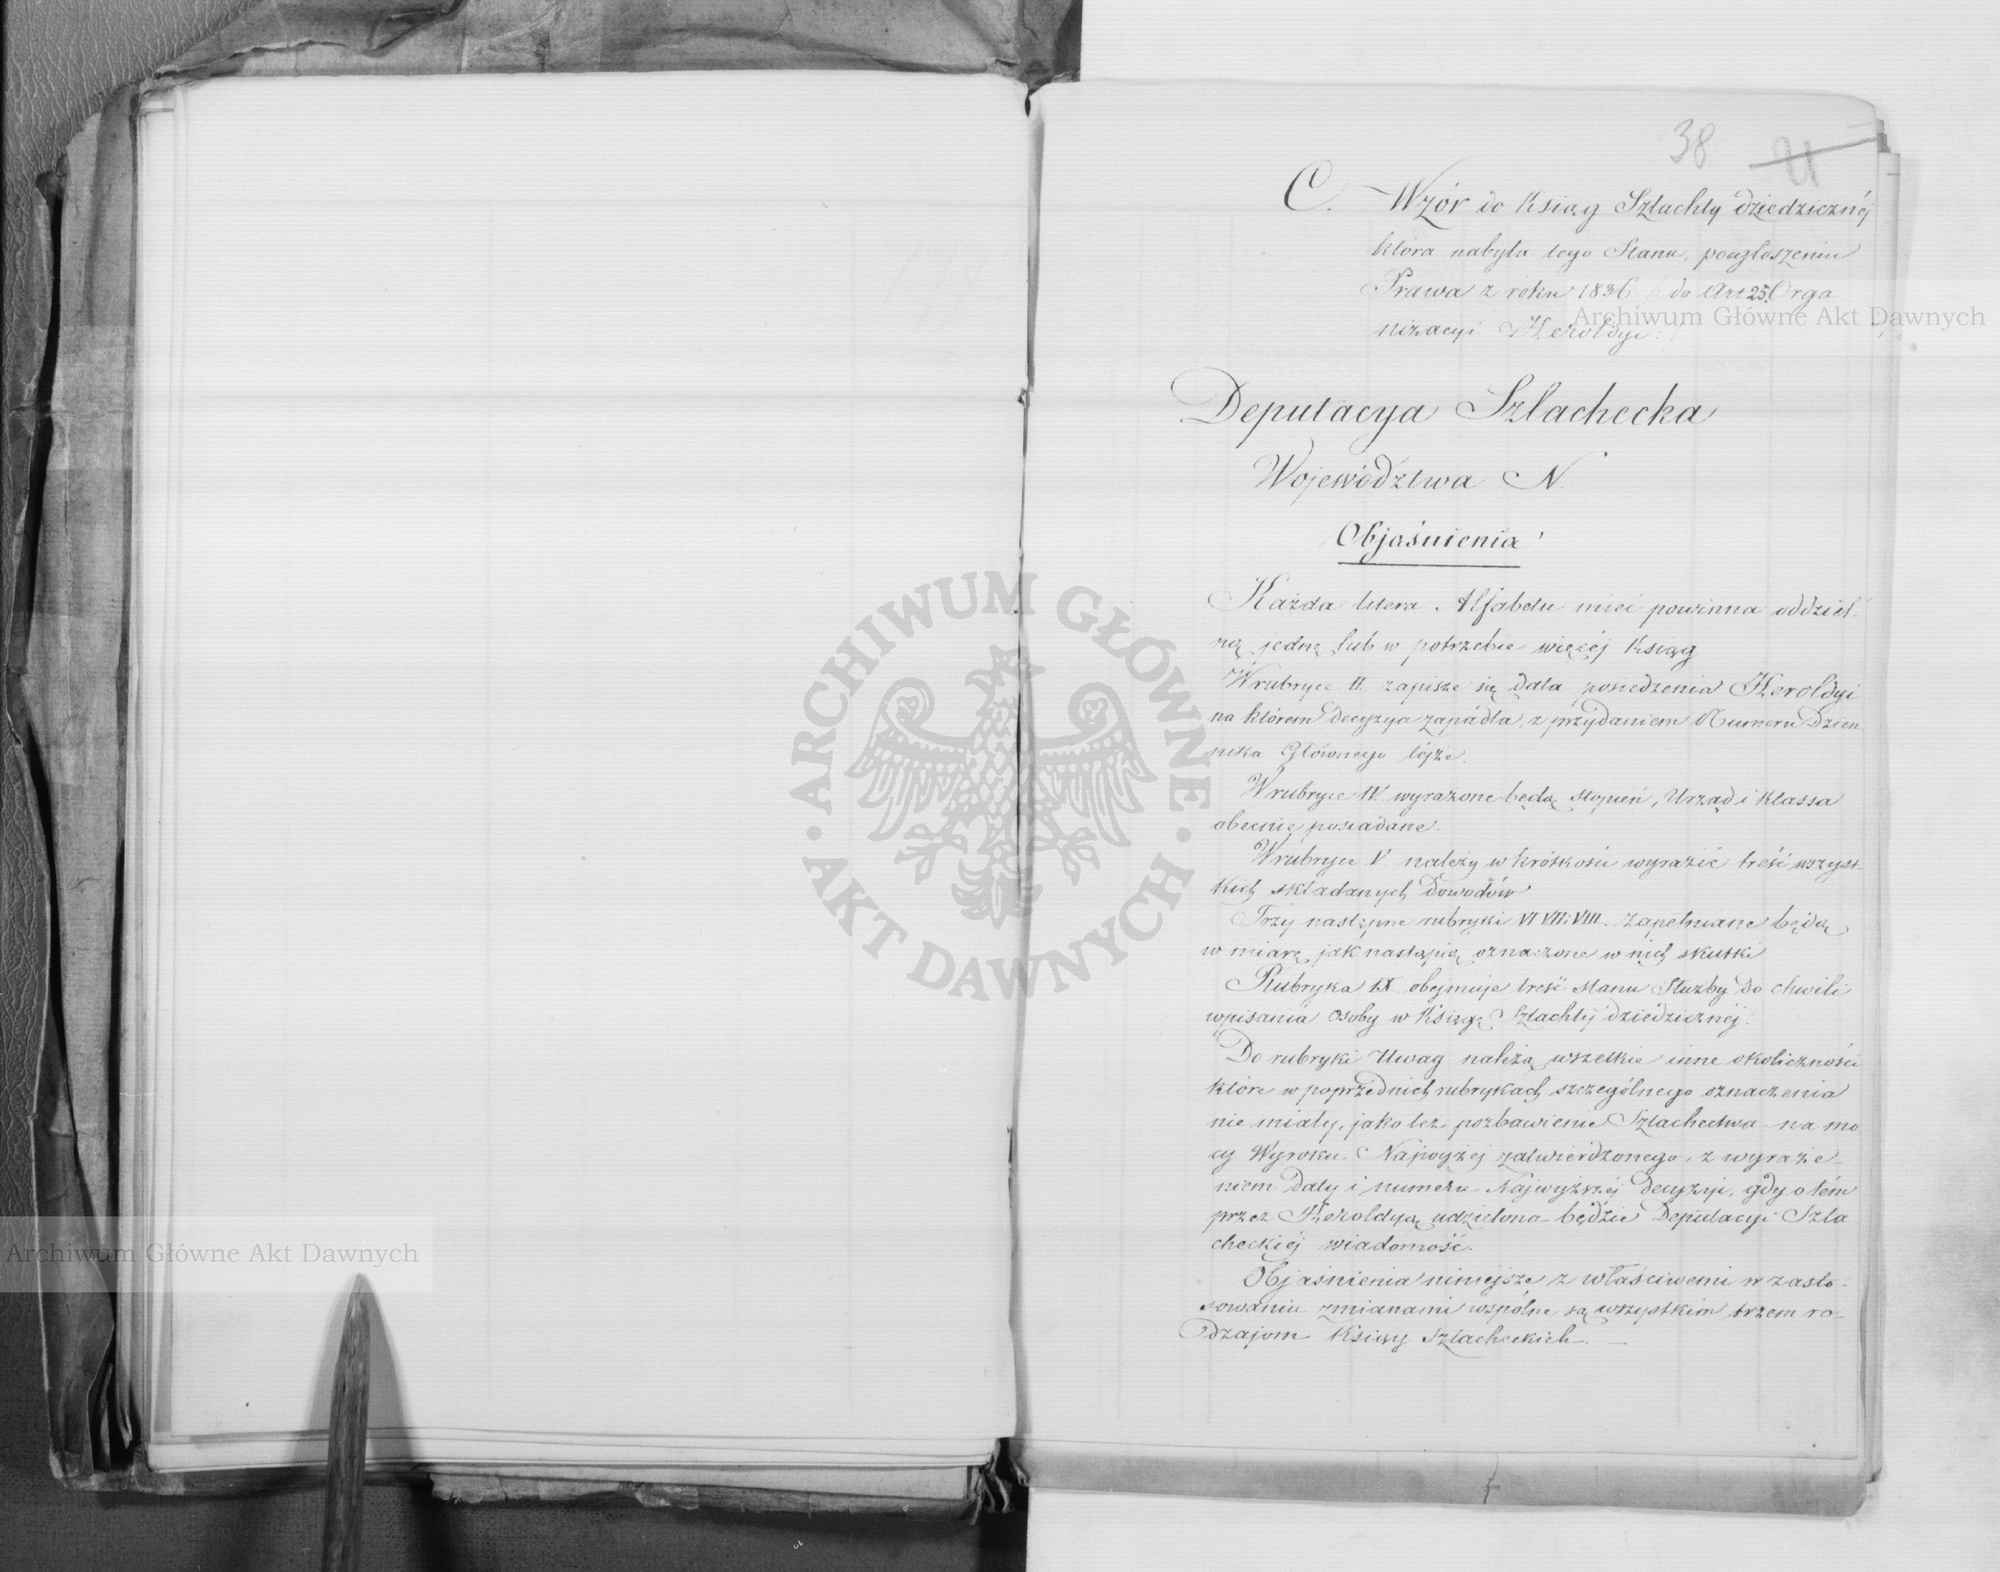 38 21
C. Wzór do Ksiąg Szlachty dziedzicznéj
która nabyła tego Stanu, po ogłoszeniu
Prawa z roku 1836 do Art 25. Orga
nizacyi Heroldyi
Deputacya Szlachecka
Województwa N.
Objaśnienia
Każda litera Alfabetu mieć powinna oddziel-
ną jedną lub w potrzebie więcéj Ksiąg
W rubryce II zapisze się data posiedzenia Heroldyi
na którem decyzya zapadła, z przydaniem Numeru Dzien
nika Głównego téjże.
W rubryce IV wyrażone będą stopień, Urząd i Klassa
obecnie posiadane.
W rubryce V. należy w krótkości wyrazić treść wszyst-
kich składanych Dowodów
Trzy następne rubryki VI VII i VIII. zapełniane będą
w miarę jak nastąpią oznaczone w nich skutki
Rubryka IX. obejmuje treść stanu Służby do chwili
wpisania osoby w Księgę Szlachty dziedzicznéj.
Do rubryki Uwag należą wszelkie inne okoliczności
które w poprzednich rubrykach szczególnego oznaczenia
nie miały, jako też pozbawienie Szlachectwa na mo
cy Wyroku Najwyżej zatwierdzonego, z wyraże-
niem daty i numeru Najwyższéj decyzyi, gdy o tém
przez Heroldyą udzielona będzie Deputacyi Szla
checkiéj wiadomość.
Objaśnienia niniejsze z właściwemi w zasto-
sowaniu zmianami wspólne są wszystkim trzem ro-
dzajom Ksiąg Szlacheckich.
Archiwum Główne Akt Dawnych
ARCHIWUM GŁÓWNE · AKT DAWNYCH ·
Archiwum Główne Akt Dawnych